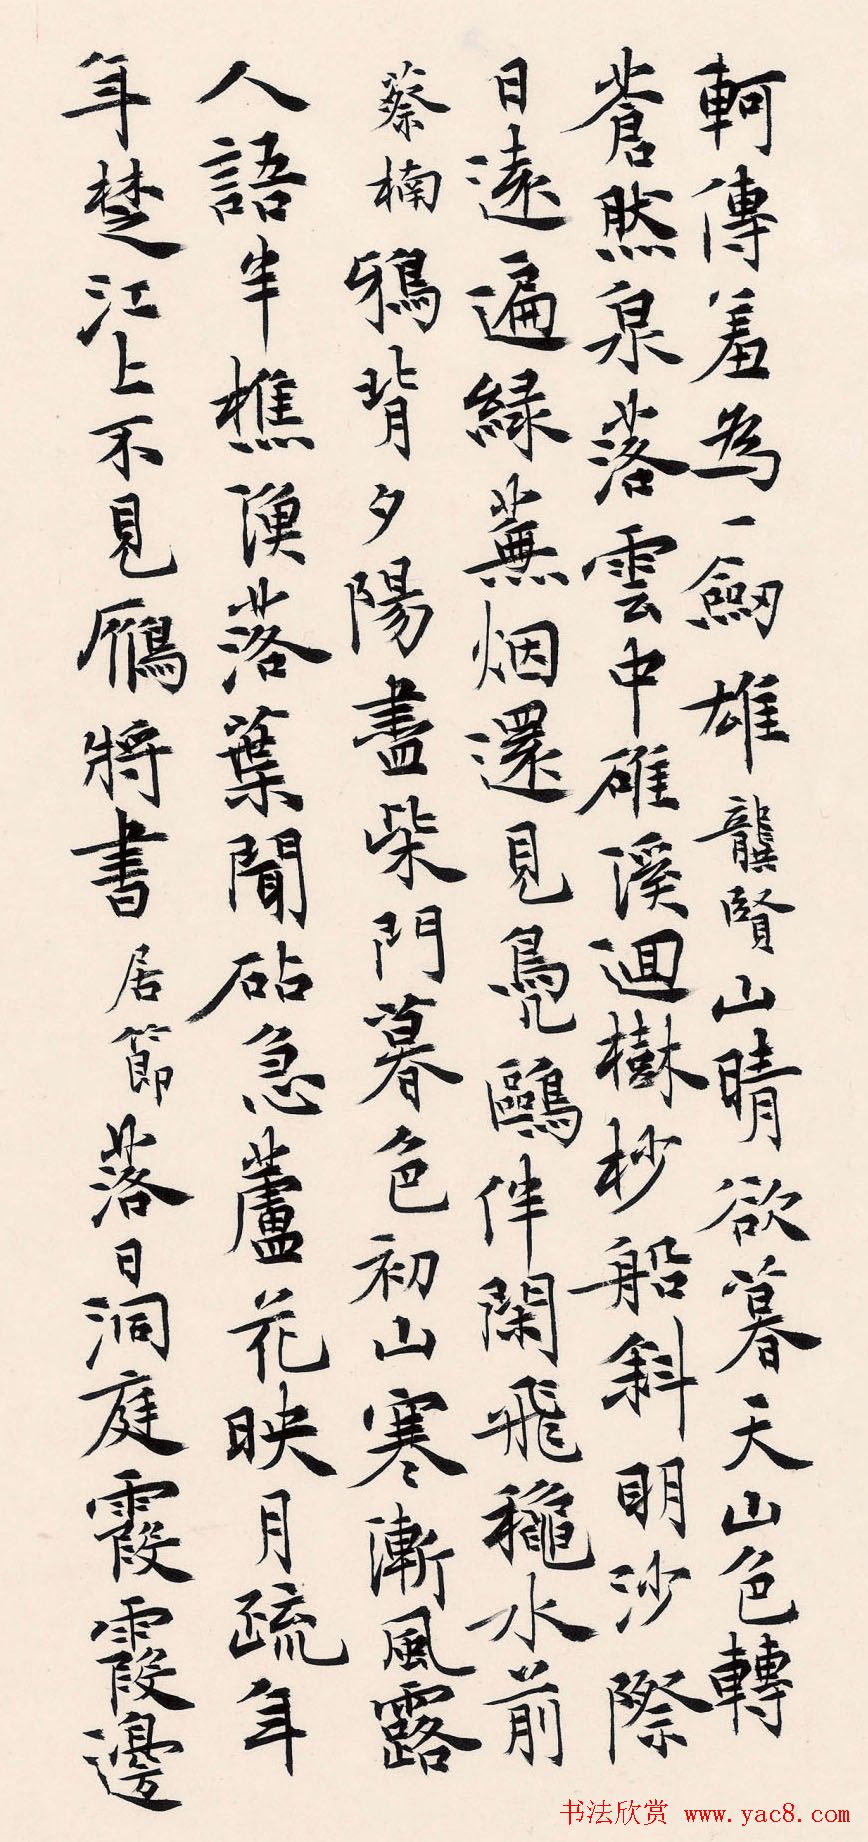 軻傳羞為一劔雄龔賢山晴欲暮天山色轉
蒼然泉落雲中碓溪迴樹杪船斜明沙際
日遠遍綠蕪烟還見鳧鷗伴閑飛龝水前
蔡楠鴉背夕陽盡柴門暮色初山寒漸風露
人語半樵漁落葉聞砧急蘆花映月疏年
年楚江上不見鴈將書居節落日洞庭霞霞邊
书法欣赏 www.yac8.com